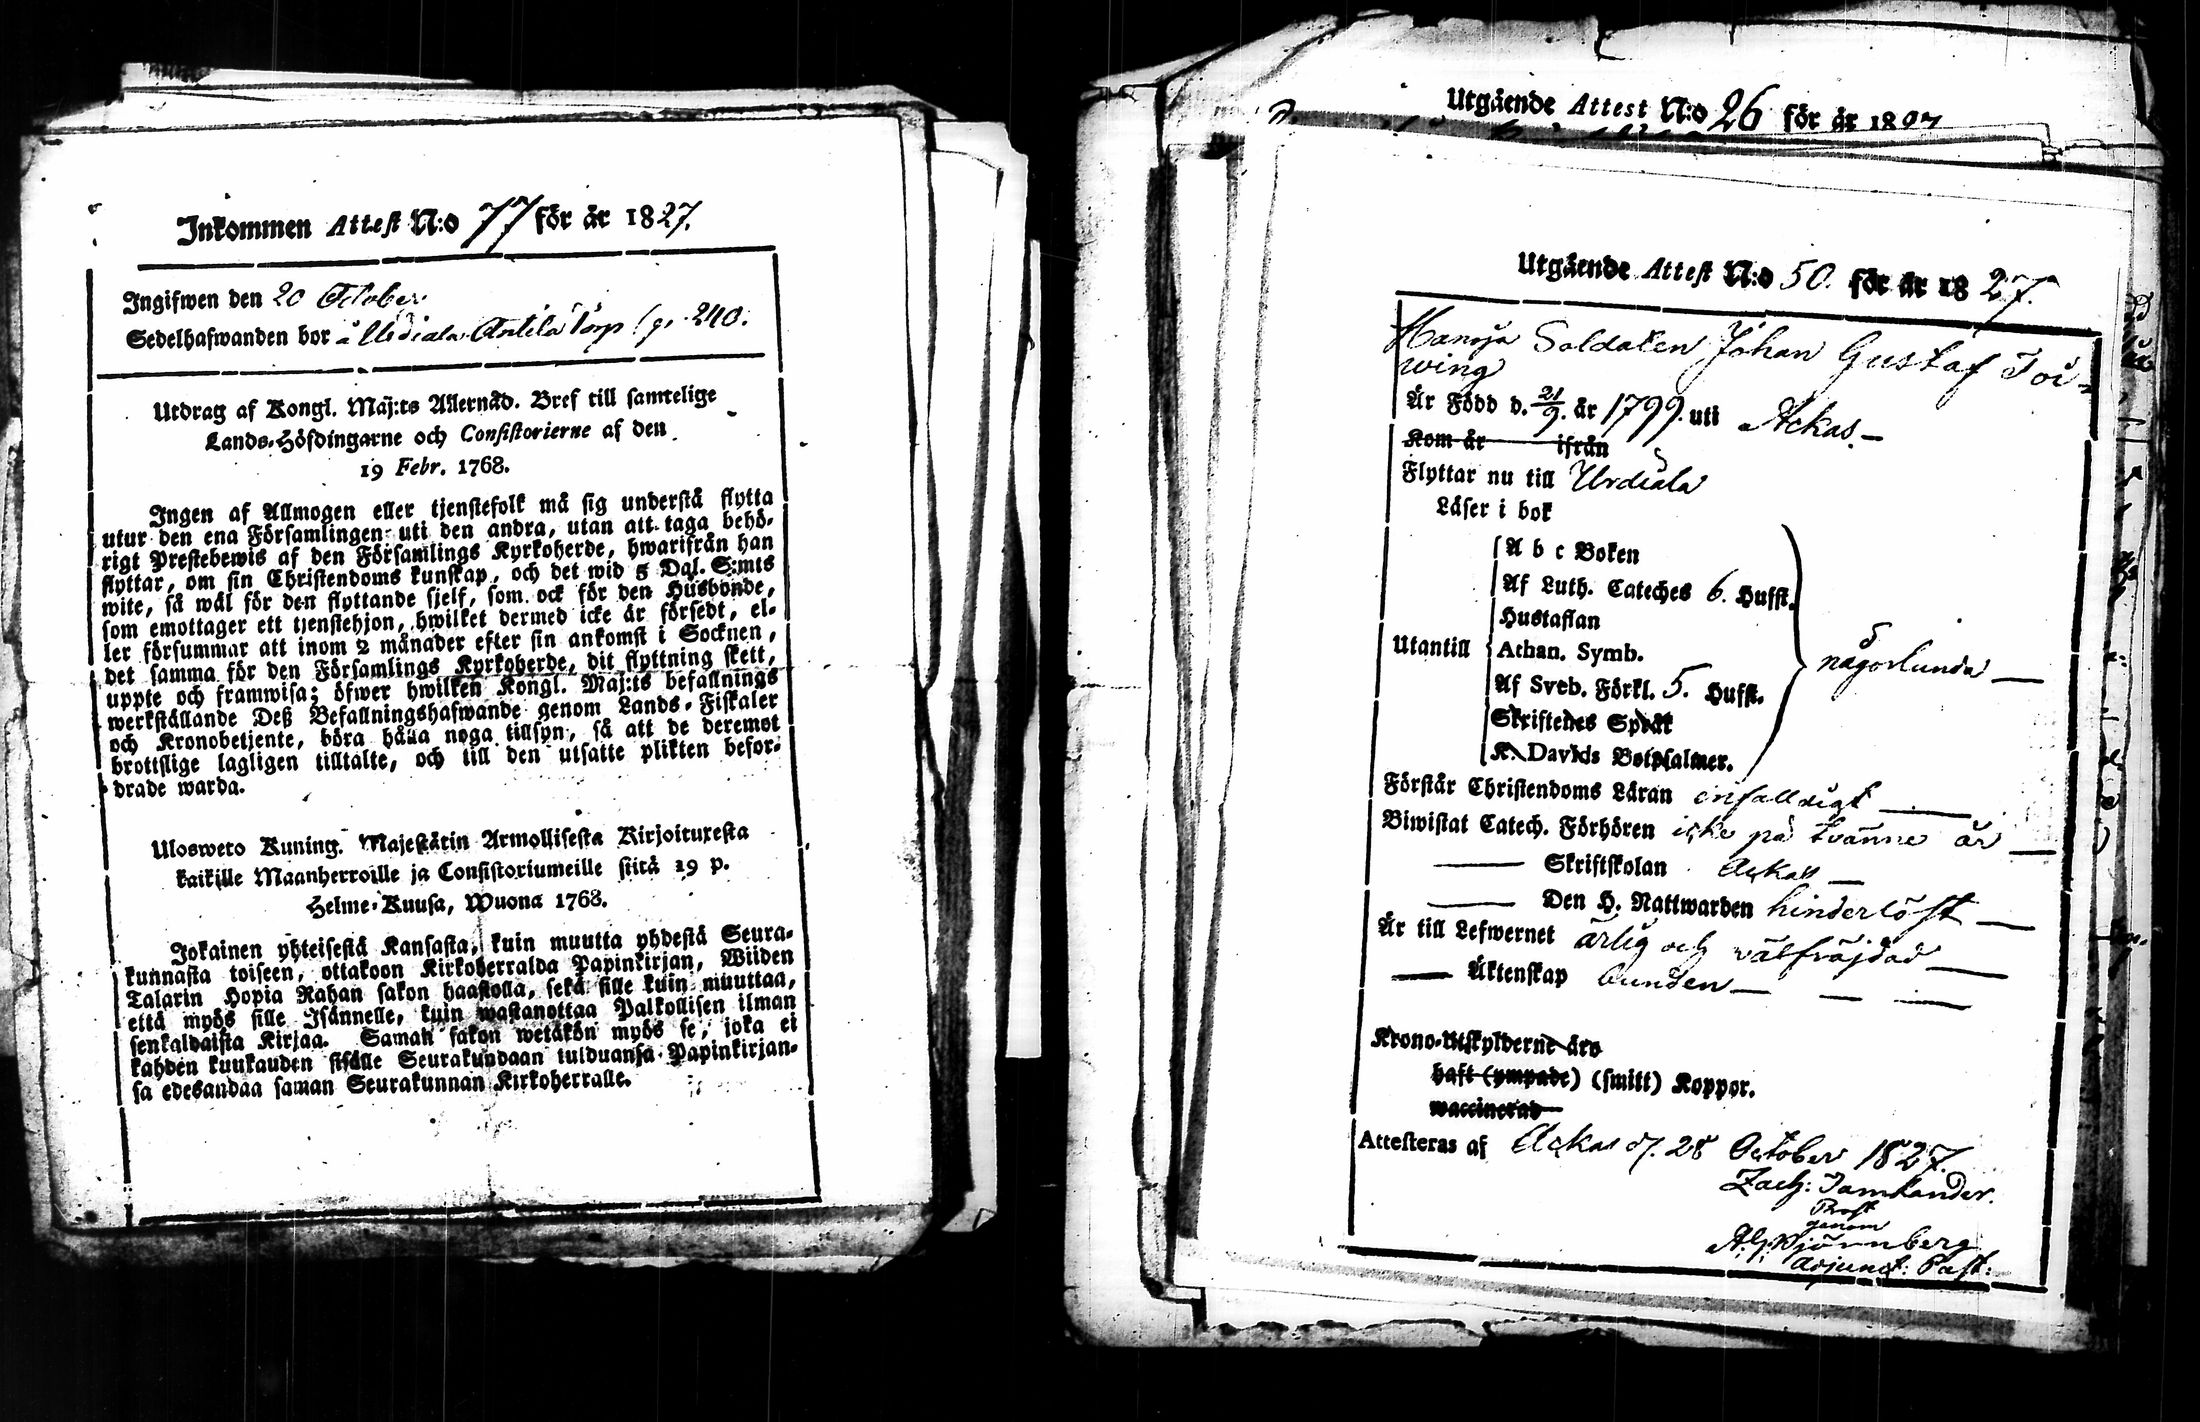 Inkommen Attest N:o 77 för år 1827.
Ingifwen den 20 October.
Sedelhafwanden bor å Urdiala Antila Torp p. 240.
Utdrag af Kongl. Maj:ts Allernåd. Bref till samtelige
Lands-Höfdingarne och Consistorierne af den
19 Febr. 1768.
Ingen af Allmogen eller tjenstefolk må sig understå flytta
utur den ena Församlingen uti den andra, utan att taga behö-
rigt Prestebewis af den Församlings Kyrkoherde, hwarifrån han
flyttar, om sin Christendoms kunskap, och det wid 5 Dal. S:mts
wite, så wäl för den flyttande sjelf, som ock för den Husbonde,
som emottager ett tjenstehjon, hwilket dermed icke är försedt, el-
ler försummar att inom 2 månader efter sin ankomst i Socknen,
det samma för den Församlings Kyrkoherde, dit flyttning skett,
uppte och framwisa; öfwer hwilken Kongl. Maj:ts befallnings
werkställande Deß Befallningshafwande genom Lands-Fiskaler
och Kronobetjente, böra hålla noga tillsyn, så att de deremot
brottslige lagligen tilltalte, och till den utsatte plikten befor-
drade warda.
Ulosweto Kuning. Majestätin Armollisesta Kirjoituxesta
kaikille Maanherroille ja Consistoriumeille siitä 19 p.
Helme-Kuusa, Wuona 1768.
Jokainen yhteisestä Kansasta, kuin muutta yhdestä Seura-
kunnasta toiseen, ottakoon Kirkoherralda Papinkirjan, Wiiden
Talarin Hopia Rahan sakon haastolla, sekä sille kuin muuttaa,
että myös sille Isännelle, kuin wastanottaa Palkollisen ilman
senkaldaista Kirjaa. Saman sakon wetäkön myös se, joka ei
kahden kuukauden sisälle Seurakundaan tulduansa Papinkirjan-
sa edesandaa saman Seurakunnan Kirkoherralle.
Utgående Attest N:o 26 för år 1827
Utgående Attest N:o 50. för år 1827.
Soldaten Johan Gustaf Toi-
wing
Är Född d. 21/9. år 1799. uti Ackas.
Kom år ifrån
Flyttar nu till Urdiala
Läser i bok
A b c Boken
Af Luth. Cateches 6. Hufst.
Hustaflan
Utantill Athan. Symb. någorlunda
Af Sveb. Förkl. 5. Hufst.
Skriftenes Språk
K. Davids Botpsalmer.
Förstår Christendoms Läran enfalldigt
Biwistat Catech. Förhören icke på tvänne år
Skriftskolan Ackas
Den H. Nattwarden hinderlöst
Är till Lefwernet ärlig och välfräjdad
Äktenskap bunden
Krono-Utskylderne äro
haft (ympade) (smitt) Koppor.
waccinerad
Attesteras af Ackas d. 28 October 1827.
Zach:
Prost
genom
Adjunct: Past: